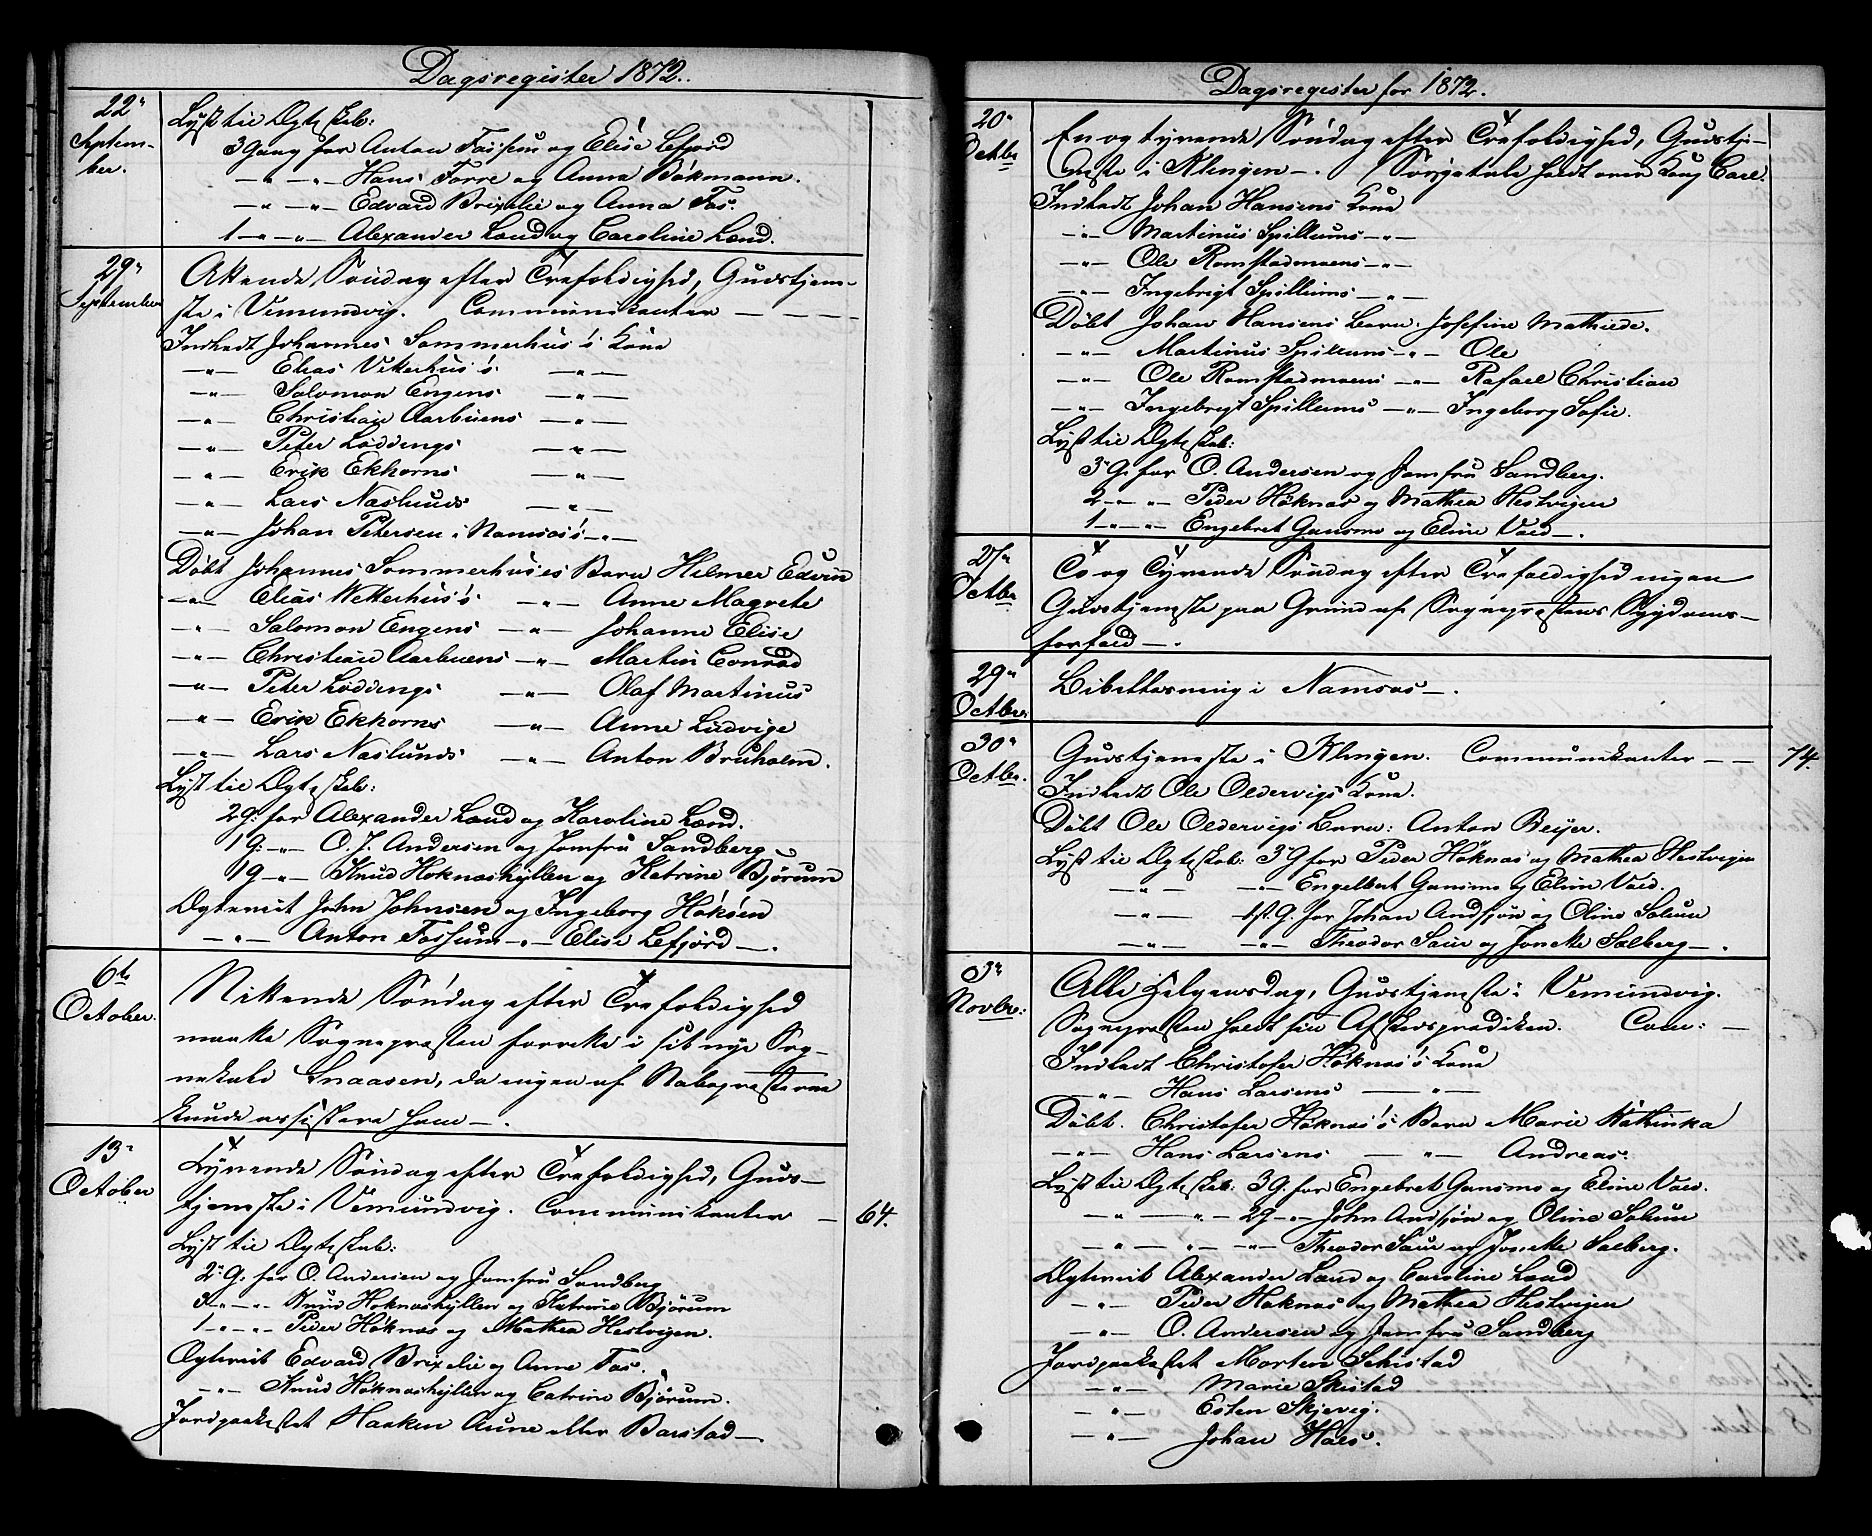 Dagsregister 1872.
22n
Septem-
ber.
Lyst til Ægteskab:
3 Gang for Anton Fossum og Elise Lefjord
—„— —„— Hans Torre og Anna Bökmann.
—„— —„— Edvard Brixelie og Anna Fos.
1 —„— —„— Alexander Lund og Caroline Lund.
29n
September
Attende Söndag efter Trefoldighed, Gudstjene-
ste i Vemundvig. Communicanter — — — —
Indledt Johannes Sommerhus's Kone
—„— Elias Vetterhus's —„—
—„— Salomon Engens —„—
—„— Christian Aarbuens —„—
—„— Peter Löddengs —„—
—„— Erik Ekhorns —„—
—„— Lars Naslunds —„—
—„— Johan Petersen i Namsos's —„—
Döbt Johannes Sommerhuses Barn Hilmer Edvin
—„— Elias Vetterhus's —„— Anne Magrete
—„— Salomon Engens —„— Johanne Elise
—„— Christian Aarbuens —„— Martin Conrad
—„— Peter Löddengs —„— Olaf Martinus
—„— Erik Ekhorns —„— Anne Ludvige
—„— Lars Naslunds —„— Anton Bruholm.
Lyst til Ægteskab:
2 G: for Alexander Lund og Karoline Lund.
1 G: —„— O. J. Andersen og Jomfru Sandberg
1 G —„— Knud Höknashyllen og Katrine Björum
Ægteviet John Johnsen og Ingeborg Höknes
—„— Anton Fossum —„— Elise Lefjord —.
6te
October.
Nittende Söndag efter Trefoldighed
maatte Sognepresten forrette i sit nye Sog-
nekald Snaasen, da ingen af Nabopresterne
kunde assistere ham —.
13n
October
Tyvende Söndag efter Trefoldighed, Guds-
tjeneste i Vemundvig. Communikanter — 64.
Lyst til Ægteskab:
2n G. for O. Andersen og Jomfru Sandberg
3 —„— —„— Knud Höknashyllen og Katrine Björum
1 —„— —„— Peder Höknas og Mathea Hestvigen.
Ægteviet Edvard Brixelie og Anne Fos.
—„— Knud Höknashyllen og Catrine Björum.
Jordpaakastet Haaken Aune eller Barstad —.
Dagsregister for 1872.
20n
Octbr
En og tyvende Söndag efter Trefoldighed, Gudstje-
neste i Klingen —. Sörgetale holdt over Kong Carl.
Indledt Johan Hansens Kone
—„— Martinus Spillums —„—
—„— Ole Romstadmoens —„—
—„— Ingebrigt Spillums —„—
Döbt Johan Hansens Barn. Josefine Mathilde.
—„— Martinus Spillums —„— Ole
—„— Ole Romstadmoens —„— Rafael Christian
—„— Ingebrigt Spillums —„— Ingeborg Sofie.
Lyst til Ægteskab:
3n G. for O. Andersen og Jomfru Sandberg.
2 —„— „— Peder Höknas og Mathea Hestvigen
1 —„— „— Engebret Gansmo og Eline Void —.
27n
Octbr
To og Tyvende Söndag efter Trefoldighed ingen
Gudstjeneste paa Grund af Sognepræstens Sygdoms-
forfald —.
29n
Octbr.
Bibellæsning i Namsos —.
30n
Octbr.
Gudstjeneste i Klingen. Communikanter — — 74.
Indledt Ole Oldervigs Kone.
Döbt Ole Oldervigs Barn: Anton Beijer.
Lyst til Ægteskab: 3n G for Peder Höknas og Mathea Hestvigen
—„— —„— Engelbert Gansmo og Eline Void.
—„— 1st. G. for Johan Andsjön og Oline Solum
—„— —„— Theodor Saur og Jonette Salberg —.
3n
Novbr:
Alle Helgensdag, Gudstjeneste i Vemundvig.
Sognepresten holdt sin Afskedsprædiken. Com: —
Indledt Christofer Höknas's Kone
—„— Hans Larsens —„—
Döbt. Christofer Höknas's Barn Marie Kathinka
—„— Hans Larsens —„— Andreas.
Lyst til Ægteskab: 3 G. for Engebret Gansmo og Eline Void.
—„— —„— 2 G —„— John Andsjön og Oline Solum
—„— „— —„— Theodor Saur og Jonette Salberg.
Ægteviet Alexander Lund og Caroline Lund
—„— Peder Höknas og Mathea Hestvigen
—„— O. Andersen og Jomfru Sandberg
Jordpaakastet Morten Schistad
—„— Marie Skistad
—„— Esten Skjevig.
—„— Johan Haes.